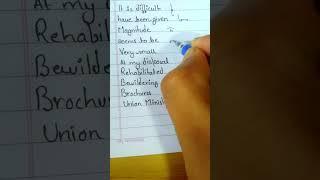 It is difficult
have been given
Magnitude
seems to be
Very small
At my disposal
Rehabilitated
Bewildering
Brochures
Union Minis
At my
Rehabili
Bewilder
Brochur
Union